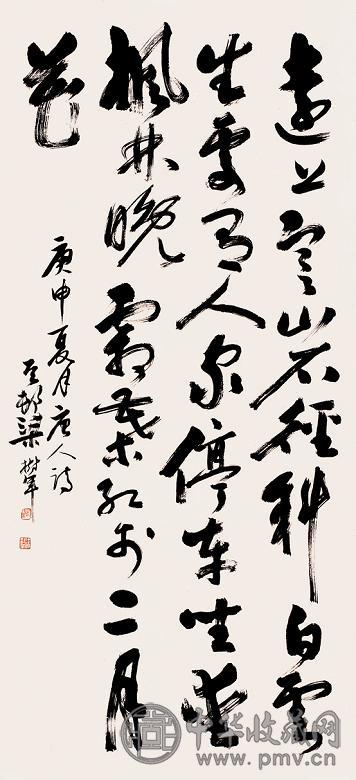 遠上寒山石徑斜白雲
生處有人家停車坐愛
楓林晚霜葉紅於二月
花
庚申夏月唐人詩
豆邨梁樹年
中华收藏网
www.pmv.cn